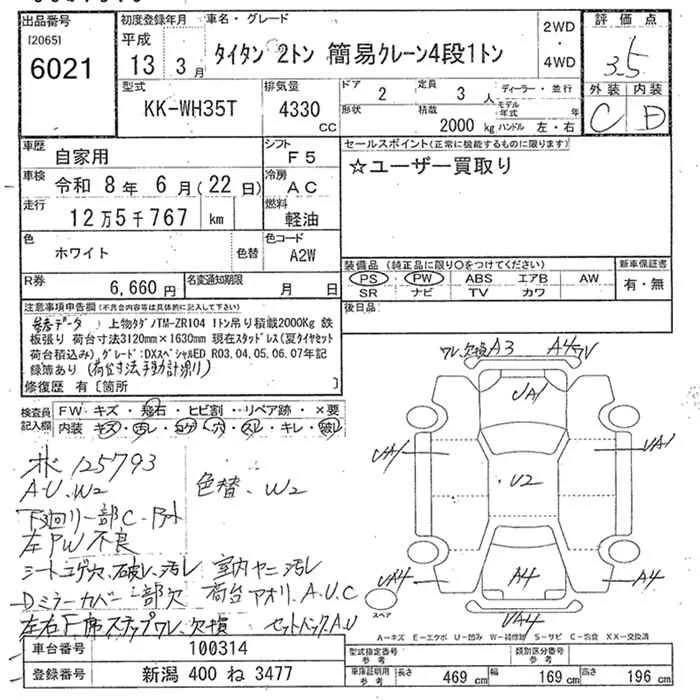 出品番号
[2065]
6021
初度登録年月
平成
13 3月
車名・グレード
タイタン 2トン 簡易クレーン4段1トン
2WD
・
4WD
評価点
3.5
外装 内装
C D
型式
KK-WH35T
排気量
4330
CC
ドア
2
定員
3 人
ディーラー・並行
形状
積載
2000 kg
モデル年式 年
ハンドル 左・右
車歴
自家用
シフト
F5
車検
令和 8年 6月(22日)
冷房
AC
走行
12万5千767 km
燃料
軽油
色
ホワイト
色替
色コード
A2W
R券
6,660円
名変通知期限
月 日
セールスポイント(正常に機能するものに限ります)
☆ユーザー買取り
装備品(純正品に限り○をつけてください)
PS・PW・ABS エアB AW
SR ナビ TV カワ
新車保証書
有・無
後日品
注意事項申告欄(不具合内容等は具体的に記入して下さい)
参考データ 上物タダノTM-ZR104 1トン吊り積載2000Kg 鉄
板張り 荷台寸法3120mm×1630mm 現在スタッドレス(夏タイヤセット
荷台積込み)グレード:DXスペシャルED R03.04.05.06.07年記
録簿あり (荷台寸法手動計測り)
修復歴 有〔箇所
検査員
記入欄
FW キズ・飛石・ヒビ割・リペア跡・×要
内装 キズ・汚レ・コゲ・穴・スレ・キレ・破レ
125793
A・U、W2
色替、W2
下回り一部C・
左PW不良
シートコゲ穴、破レ、汚レ 室内ヤニ汚レ
Dミラーカバー一部欠 荷台アオリ、A、U、C
左右F席ステップワレ、欠損 セットバックA、U
ワレ、欠損 A3 A4 ワレ
UA1
UA1
UA1
U2
UA4
A4
A4
UA4
スペア
A-キズ E-エクボ U-凹み W-補修跡 S-サビ C-腐食 XX-交換済
車台番号
100314
登録番号
新潟 400 ね 3477
型式指定番号
参考
類別区分番号
参考
車庫証明用
参考
長さ 469 cm 幅 169 cm 高さ 196 cm